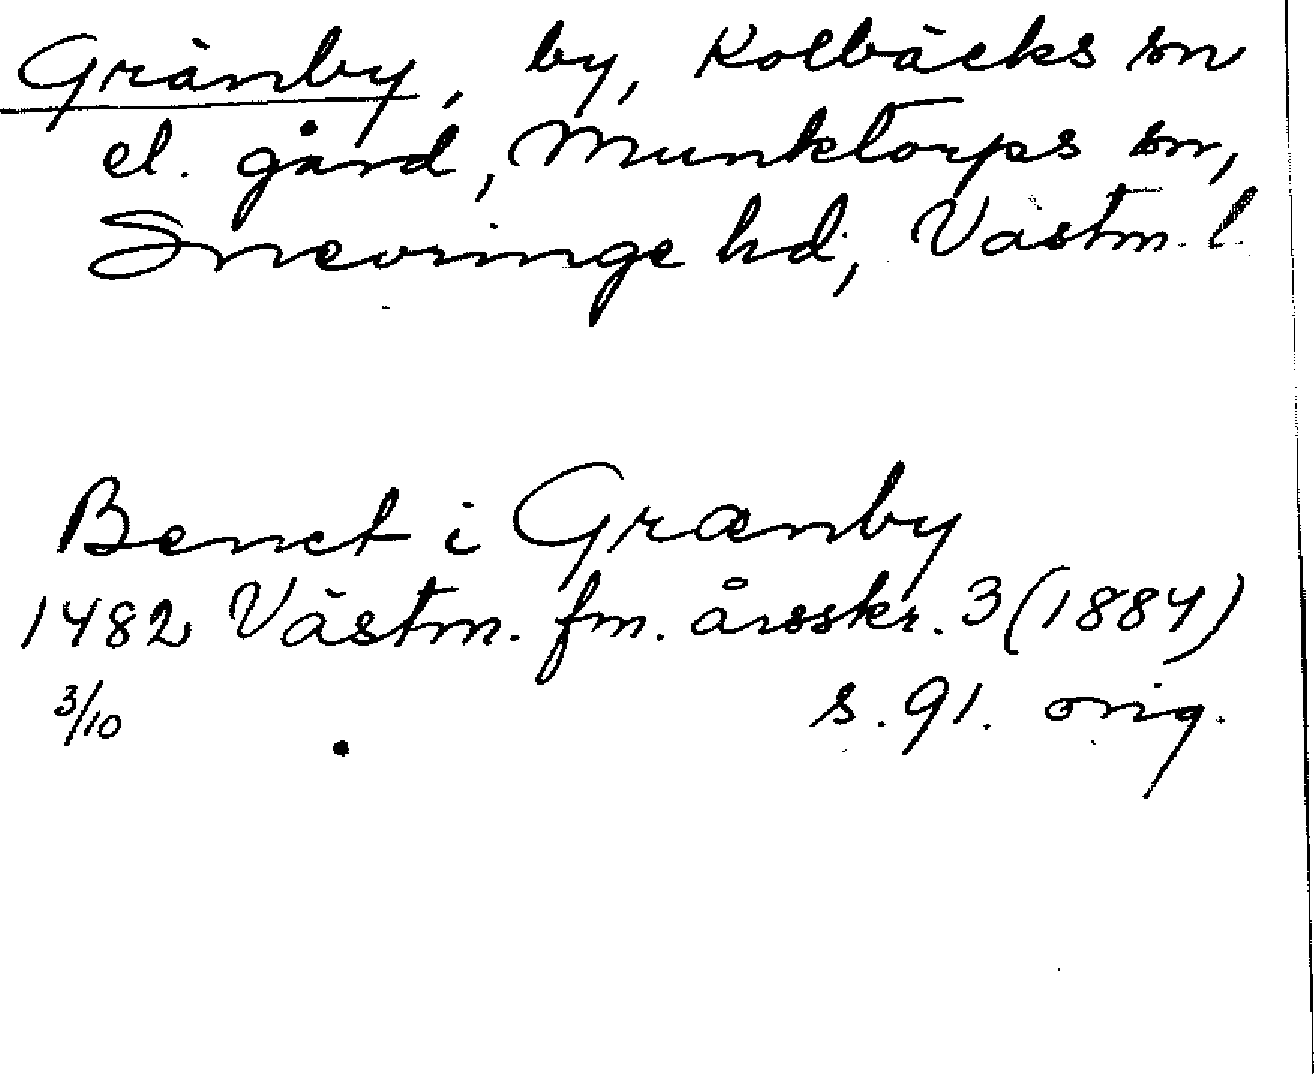 Gränby, by, Kolbäcks sn
el. gård, Munktorps sn,
Snevringe hd, Västm. l.
Benct i Grænby
1482 Västm. fm. årsskr. 3 (1884)
s. 91. orig.
3/10